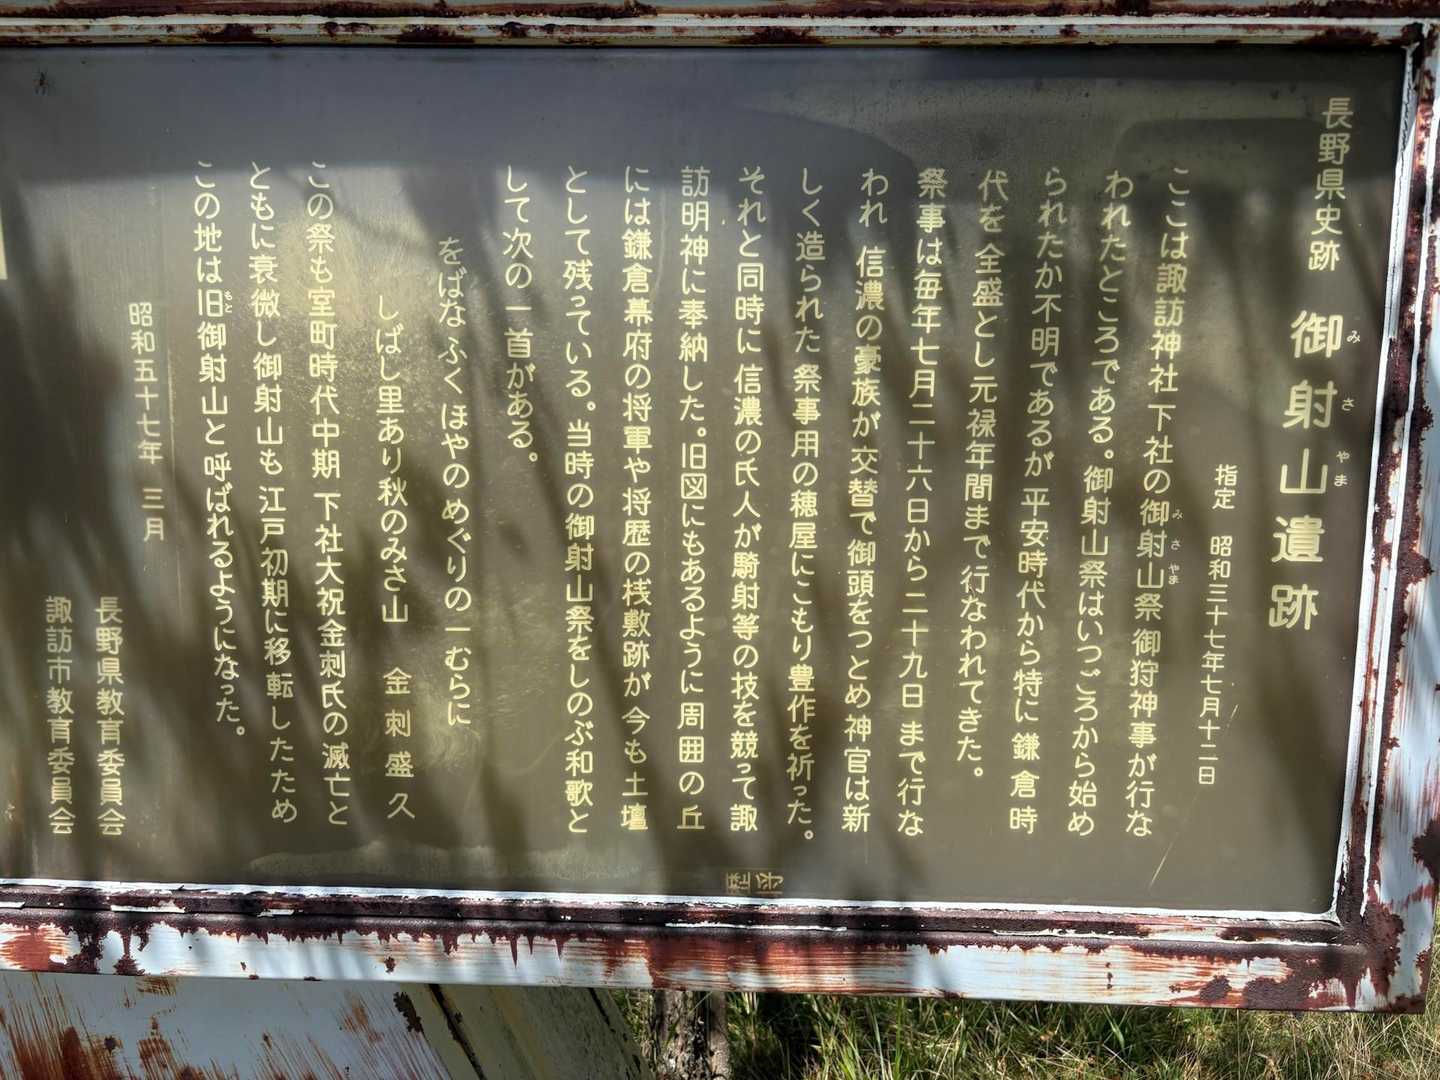 長野県史跡 御射山遺跡
みさやま
指定 昭和三十七年七月十二日
ここは諏訪神社下社の御射山祭御狩神事が行な
みさやま
われたところである。御射山祭はいつごろから始め
られたか不明であるが平安時代から特に鎌倉時
代を全盛とし元禄年間まで行なわれてきた。
祭事は毎年七月二十六日から二十九日まで行な
われ 信濃の豪族が交替で御頭をつとめ神官は新
しく造られた祭事用の穂屋にこもり豊作を祈った。
それと同時に信濃の氏人が騎射等の技を競って諏
訪明神に奉納した。旧図にもあるように周囲の丘
には鎌倉幕府の将軍や将歴の桟敷跡が今も土壇
として残っている。当時の御射山祭をしのぶ和歌と
して次の一首がある。
をばなふくほやのめぐりの一むらに
しばし里あり秋のみさ山 金刺盛久
この祭も室町時代中期下社大祝金刺氏の滅亡と
ともに衰微し御射山も江戸初期に移転したため
この地は旧御射山と呼ばれるようになった。
もと
昭和五十七年 三月
長野県教育委員会
諏訪市教育委員会